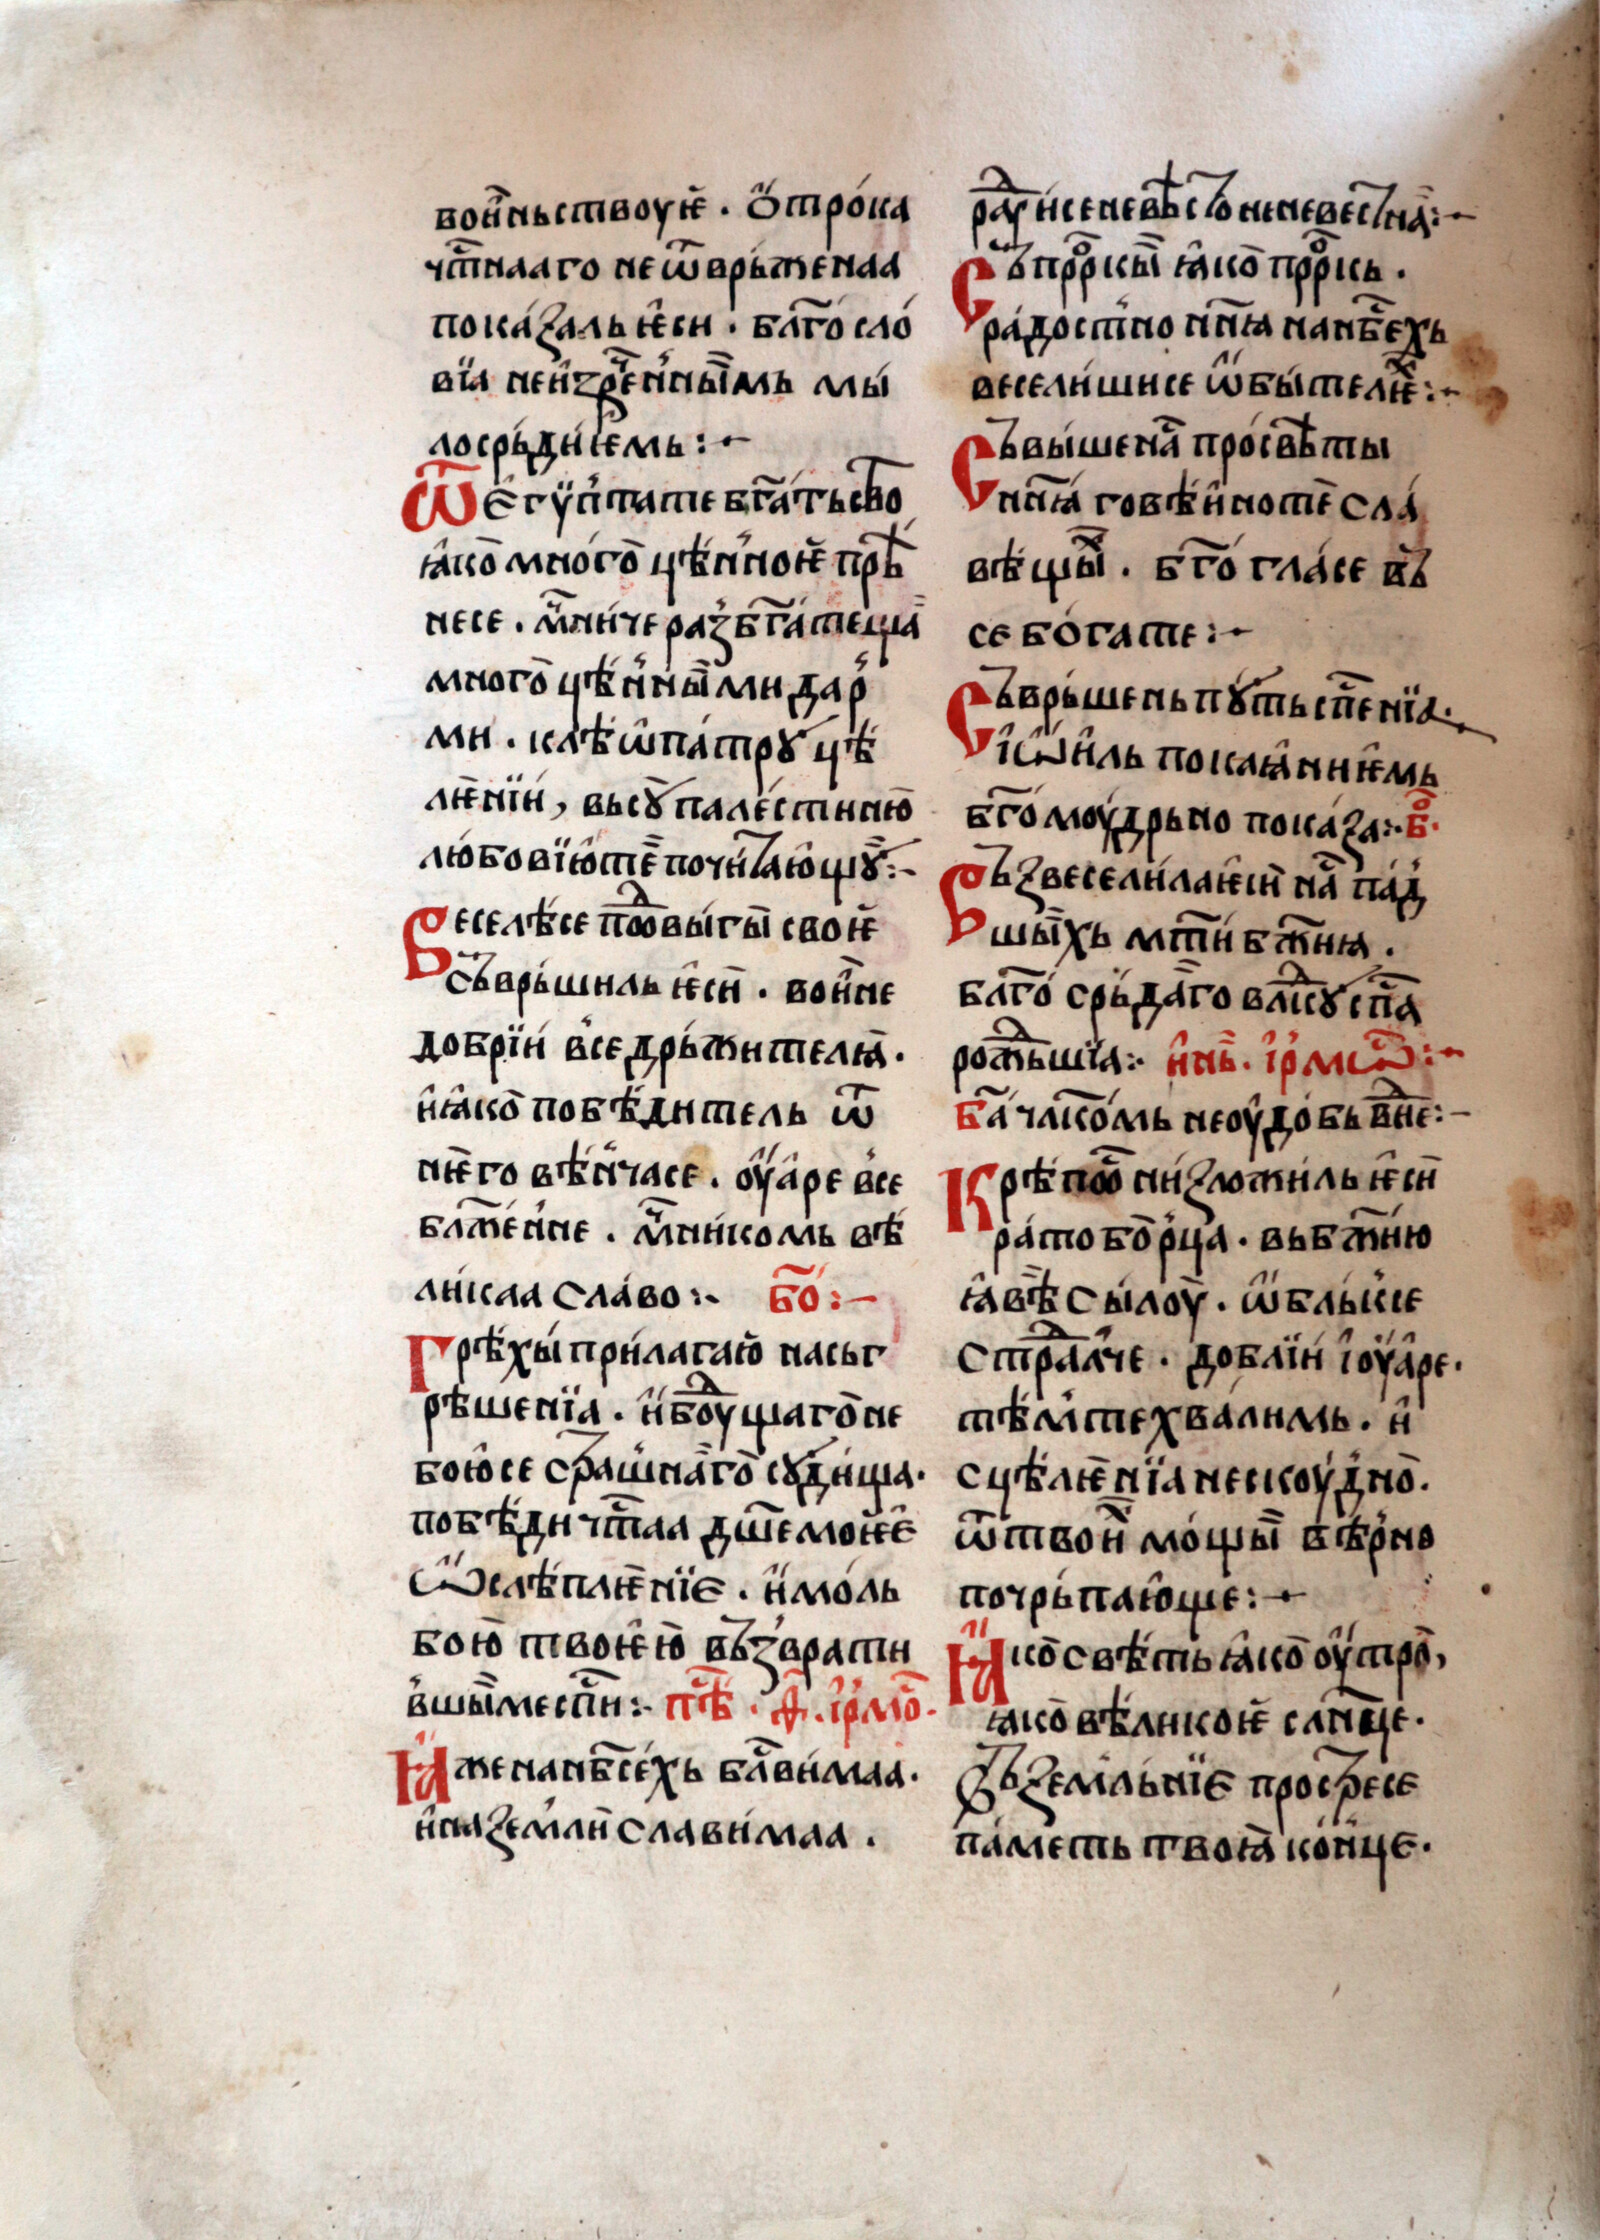 вои҆ньствоуѥ · ѻ҆тро́ка
чт҃наа го не ѿврь́женаа
пока́ꙁаль ѥси · бл҃госло́
вїа неи҆ꙁрⷱ҇е́нныⷨмь мы́
лосрь́диѥмь :~
Ѿ є҆гѵ́пта те бг҃а́тьство
ꙗ҆ко мно́го цѣ́нноѥ прѣ
несе · мⷱ҇ни́че раꙁбг҃а́теща
мно́го цѣ́нныⷨми дар
ми · клѣѡпа́трꙋ цѣ
лѥ́нїи, вьсꙋ пале́стинꙋю
любовїю те почи́таю҆щꙋ :~
Веселѣ́се поⷣвы́гы своѥ
съврь́шиль ѥси · вои҆не
добрїи все дрь́жителꙗ ·
и҆ ꙗ҆ко побѣ́дитель ѿ
нѥго вѣ́нчасе · оу҆а́ре все
бл҃же́нне · мⷱ҇ни́комь вѣ
ли́каа сла́во :~ бо҃ :~
Грѣ́хы прилагаю на сьг
рѣшенїа · и҆ боу́ⷣщаго не
бою҆се стра́шнаго сꙋди́ща ·
побѣ́ди чт҃аа дш҃е моѥѥ
ѡ҆слѣплѥ́нїє · и҆ мо́ль
бою твоѥю въꙁврати
вшыⷨ ме сп҃и :~ пѣ҃ · ѳ҃ · і҆рмо ·
Ꙗ҆же на нб҃се́хь бл҃ви́маа ·
и҆ на ꙁемли слави́маа ·
раⷣꙋи́се невѣсто неневестнаа :~
Съ прⷪ҇ркы ꙗ҆ко прⷪ҇ркь ·
ра́достно нн҃ꙗ на нб҃ехь
весели́шисе ѡ҆бы́телеⷯ :~
Съвы́шена просвѣты
нн҃ꙗ говѣ́и҆но те сла́
вѣщыⷯ · бг҃о гла́се въ
се бо́гате :~
Съврь́шень пꙋ́ть сп҃е́нїа ·
і҆ѡ҆и́ль пока́ꙗнниѥмь
бг҃омоу́дрьно пока́ꙁа :~ бⷪ҇ ·
Въꙁвесели́ла ѥси на́ па́д
шыⷨхь мт҃и бж҃иꙗ ·
бл҃го срь́даго влⷣкꙋ сп҃а
рожⷣьшїа :~ и҆нь · і҆рмѡⷭ҇ :~
Ба҃ члк҃омь неоудо́бь вⷣне :~
Крѣ́поⷭ҇ ниꙁложи́ль ѥси
ра́тобо́рца · вь бж҃ию
ꙗ҆вѣ сы́лоу · ѡ҆бль́ксе
страⷣлче · доблїи і҆ оу҆а́ре ·
тѣ́м те хва́лимь · и҆
сцѣлѥ́нїа нескоу́дно ·
ѿ твоиⷯ мо́щы вѣ́рно
почрь́паю҆ще :~
Ꙗ҆ко свѣ́ть ꙗ҆ко оу҆тро,
ꙗко вѣ́ликоѥ слн҃це ·
ѕъꙁе́мльнїє простресе
па́меть твоꙗ ко́нце ·